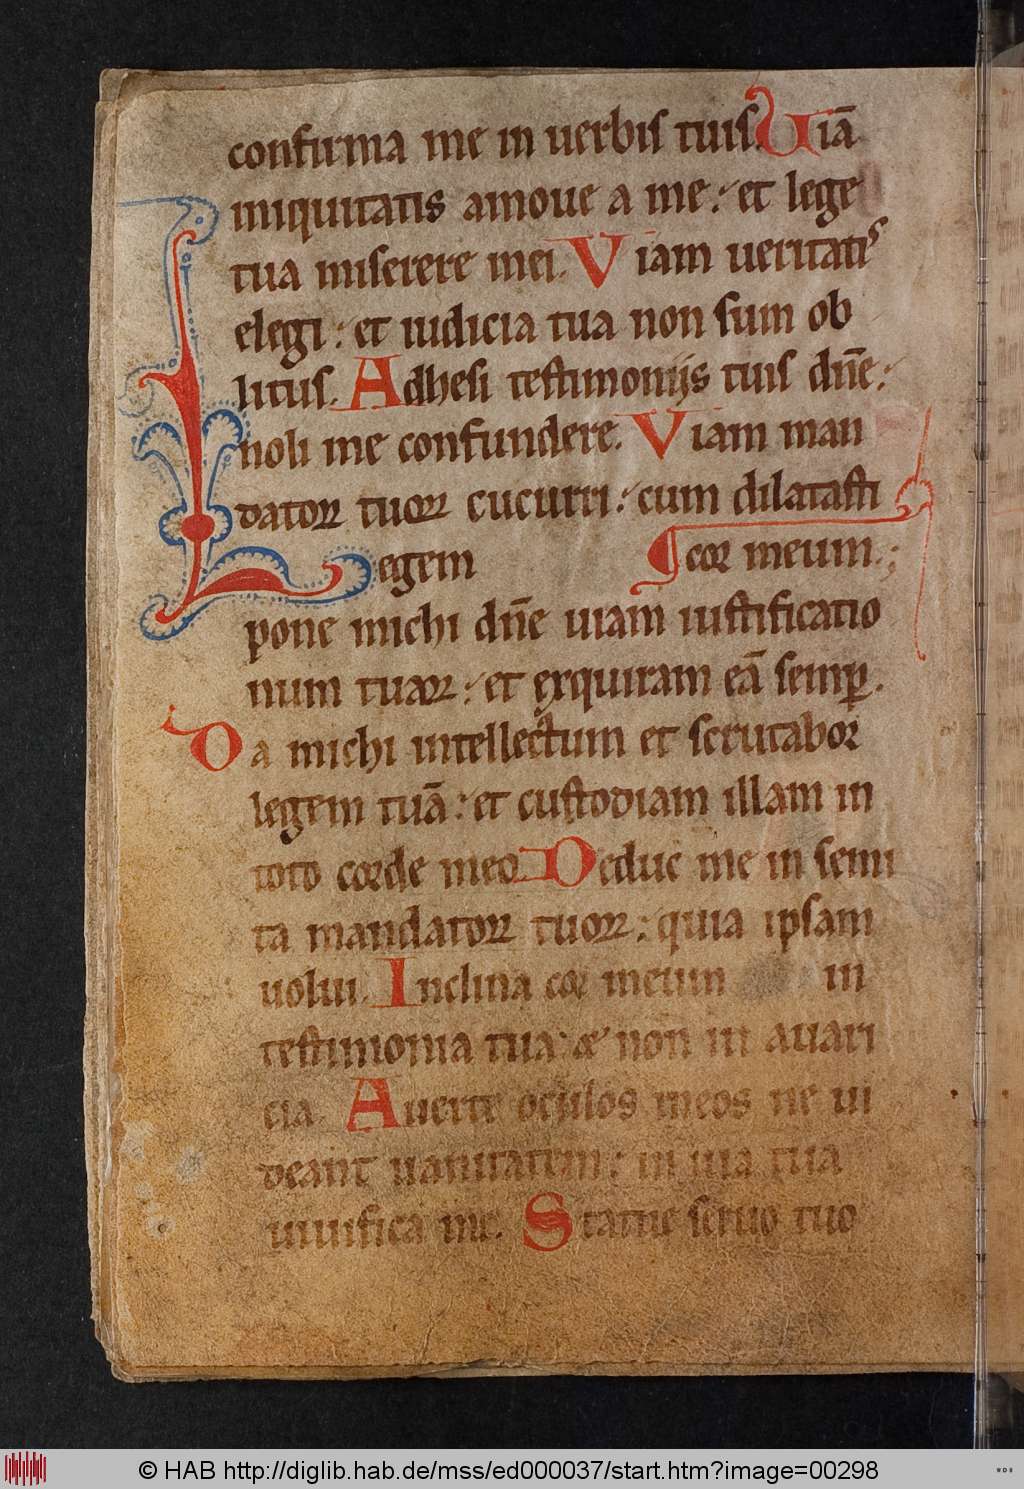 confirma me in uerbis tuis. Uiā
iniquitatis amoue a me: et lege
tua miserere mei. Viam ueritatis
elegi: et iudicia tua non sum ob
litus. Adhesi testimonijs tuis dn̄e:
noli me confundere. Viam man
datoꝝ tuoꝝ cucurri: cum dilatasti
Legem ¶ cor meum.;
pone michi dn̄e uiam iustificatio
num tuaꝝ: et exquiram eā semꝑ.
Da michi intellectum et scrutabor
legem tuā: et custodiam illam in
toto corde meo. Deduc me in semi
ta mandatoꝝ tuoꝝ: quia ipsam
uolui. Inclina cor meum in
testimonia tua: & non in auari
cia. Auerte oculos meos ne ui
deant uanitatem: in uia tua
uiuifica me. Statue seruo tuo
© HAB http://diglib.hab.de/mss/ed000037/start.htm?image=00298